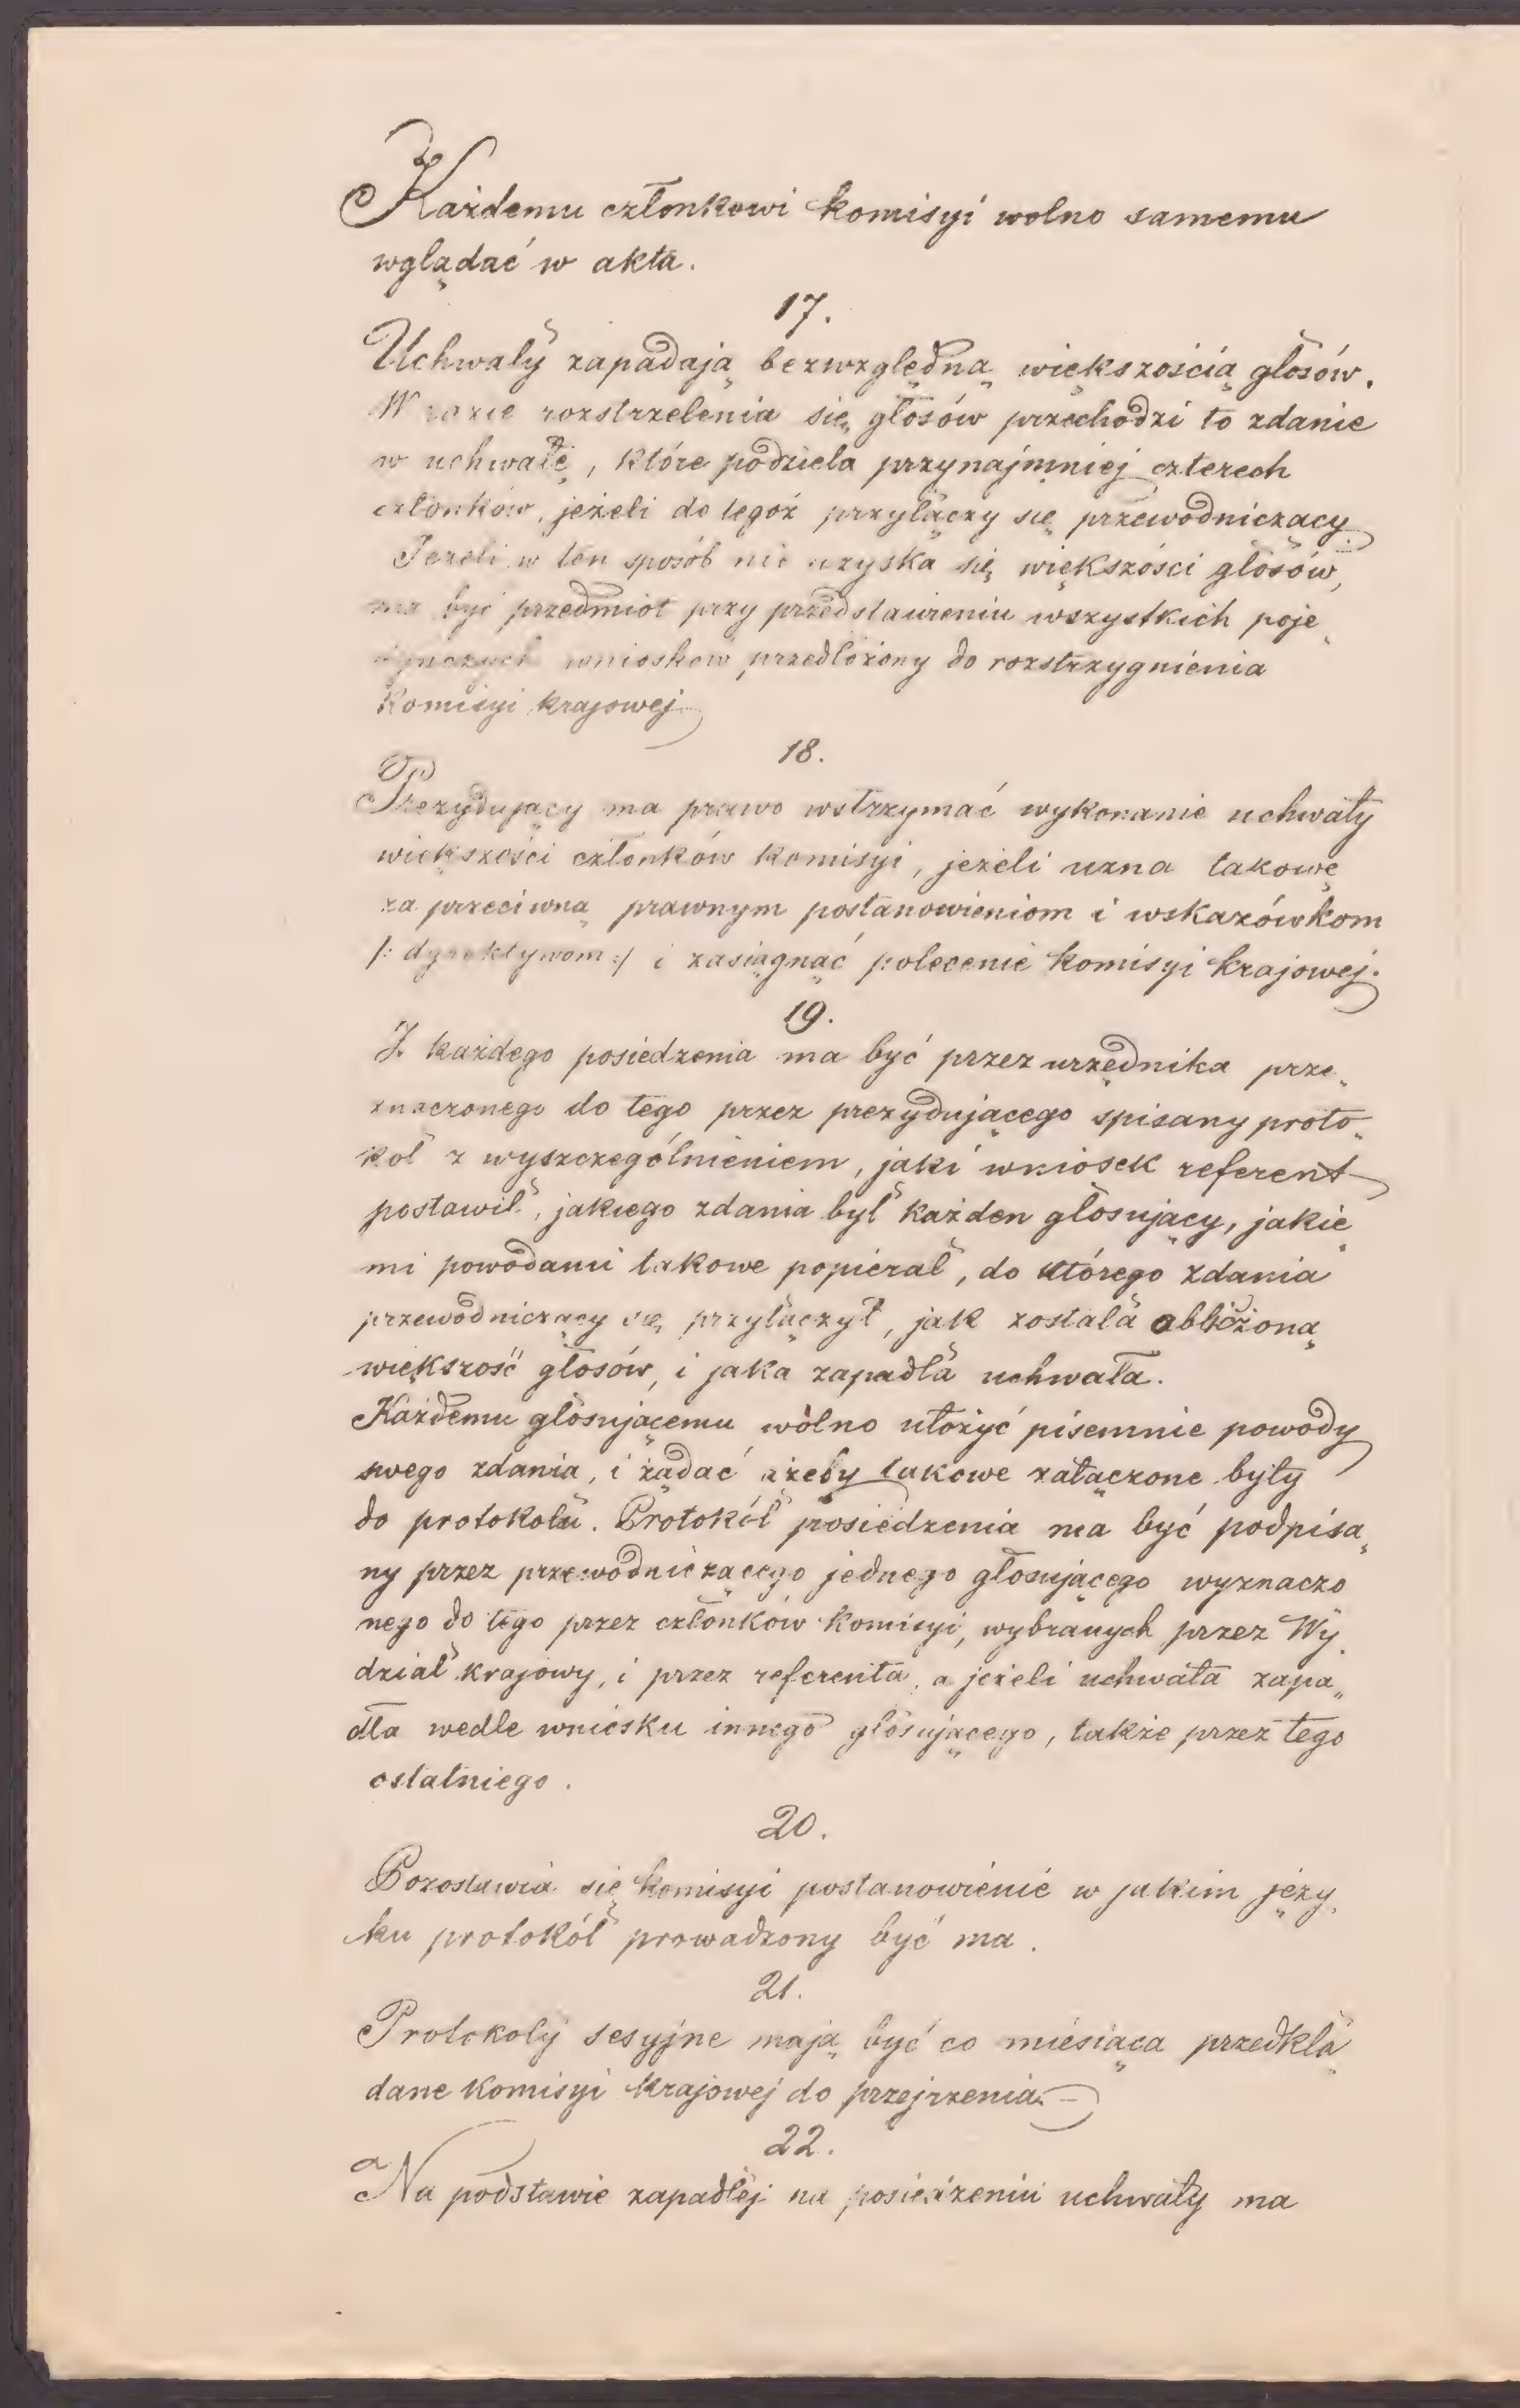 Każdemu członkowi komisyi wolno samemu
wglądać w akta.
17.
Uchwały zapadają bezwzględną większością głosów.
W razie rozstrzelenia się głosów przechodzi to zdanie
w uchwałę, które podziela przynajmniej czterech
członków, jeżeli do tegoż przyłączy się przewodniczący.
Jeżeli w ten sposób nie uzyska się większości głosów,
ma być przedmiot przy przedstawieniu wszystkich poje„
dynczych wniosków przedłożony do rozstrzygnienia
Komisyi krajowej
18.
Prezydujący ma prawo wstrzymać wykonanie uchwały
większości członków komisyi, jeżeli uzna takowę
za przeciwną prawnym postanowieniom i wskazówkom
/: dyrektywom :/ i zasiągnąć polecenie komisyi krajowej.
19.
Z każdego posiedzenia ma być przez urzędnika prze„
znaczonego do tego przez prezydującego spisany proto„
kół z wyszczególnieniem, jaki wniosek referent
postawił, jakiego zdania był każden głosujący, jakie„
mi powodami takowe popierał, do którego zdania
przewodniczący się przyłączył, jak została obliczoną
większość głosów, i jaka zapadła uchwała.
Każdemu głosującemu wolno ułożyć pisemnie powody
swego zdania, i żądać ażeby takowe załączone były
do protokołu. Protokół posiedzenia ma być podpisa„
ny przez przewodniczącego jednego głosującego wyznaczo
nego do tego przez członków komisyi, wybranych przez Wy„
dział krajowy, i przez referenta, a jeżeli uchwała zapa„
dła wedle wniosku innego głosującego, także przez tego
ostatniego.
20.
Pozostawia się komisyi postanowienie w jakim języ„
ku protokół prowadzony być ma.
21.
Protokoły sesyjne mają być co miesiąca przedkła„
dane komisyi krajowej do przejrzenia.
22.
Na podstawie zapadłej na posiedzeniu uchwały ma